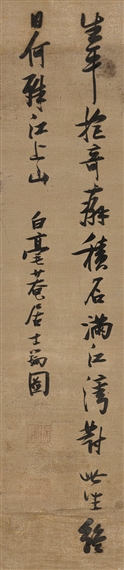 生平拙奇癖積石滿江灣對此坐銘
日何殊江上山　白毫菴居士瑞圖